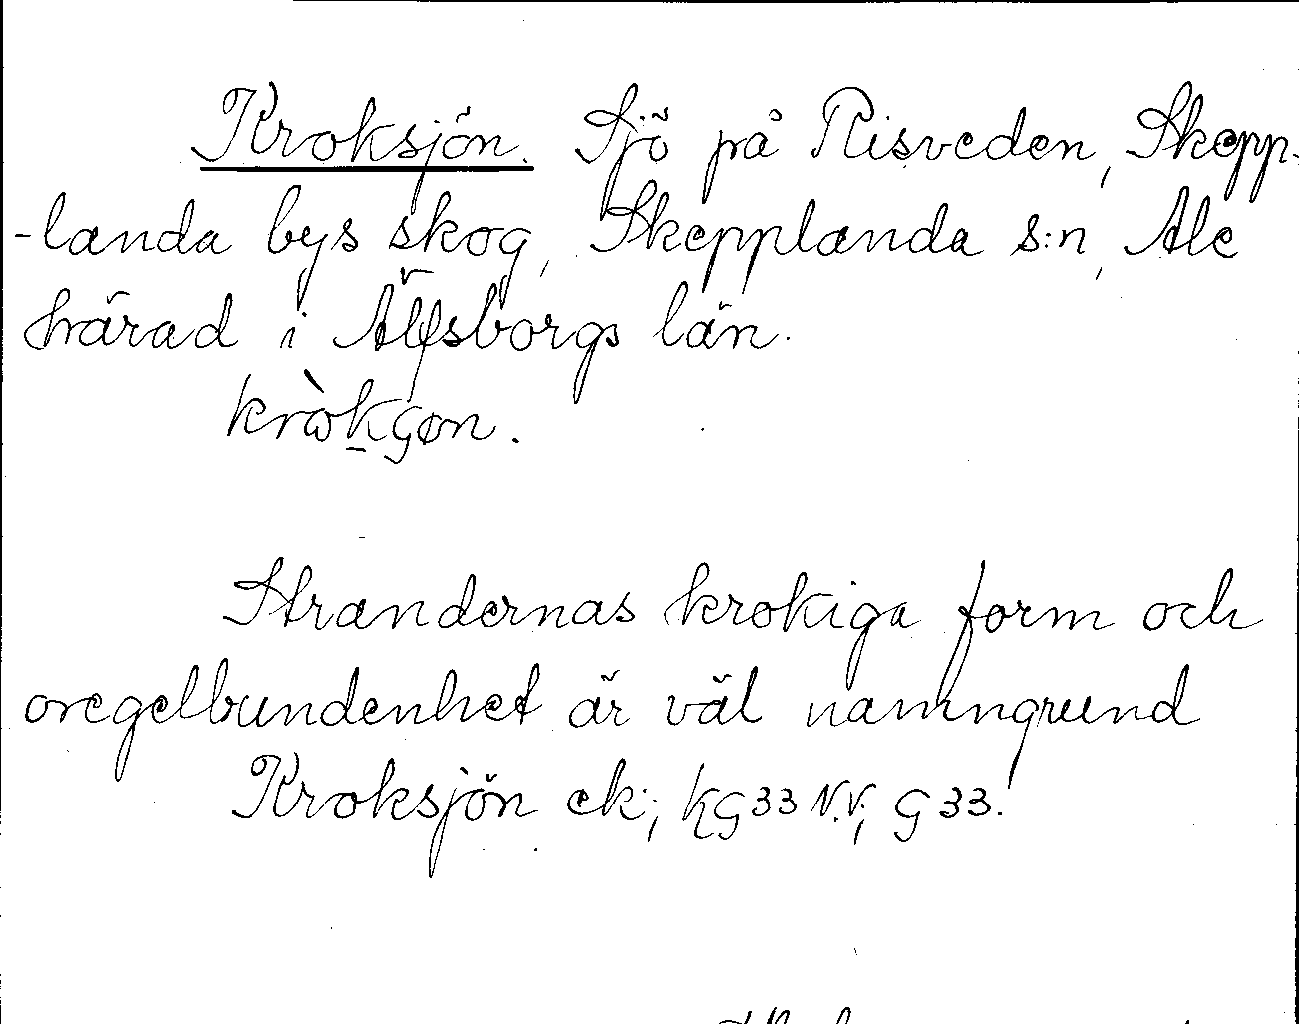 Kroksjön. Sjö på Risveden, Skepp-
-landa bys skog, Skepplanda s:n, Ale
härad i Älfsborgs län.
kròkʃøn.
Strandernas krokiga form och
oregelbundenhet är väl namngrund
Kroksjön ek; KG33 N.V; G33.